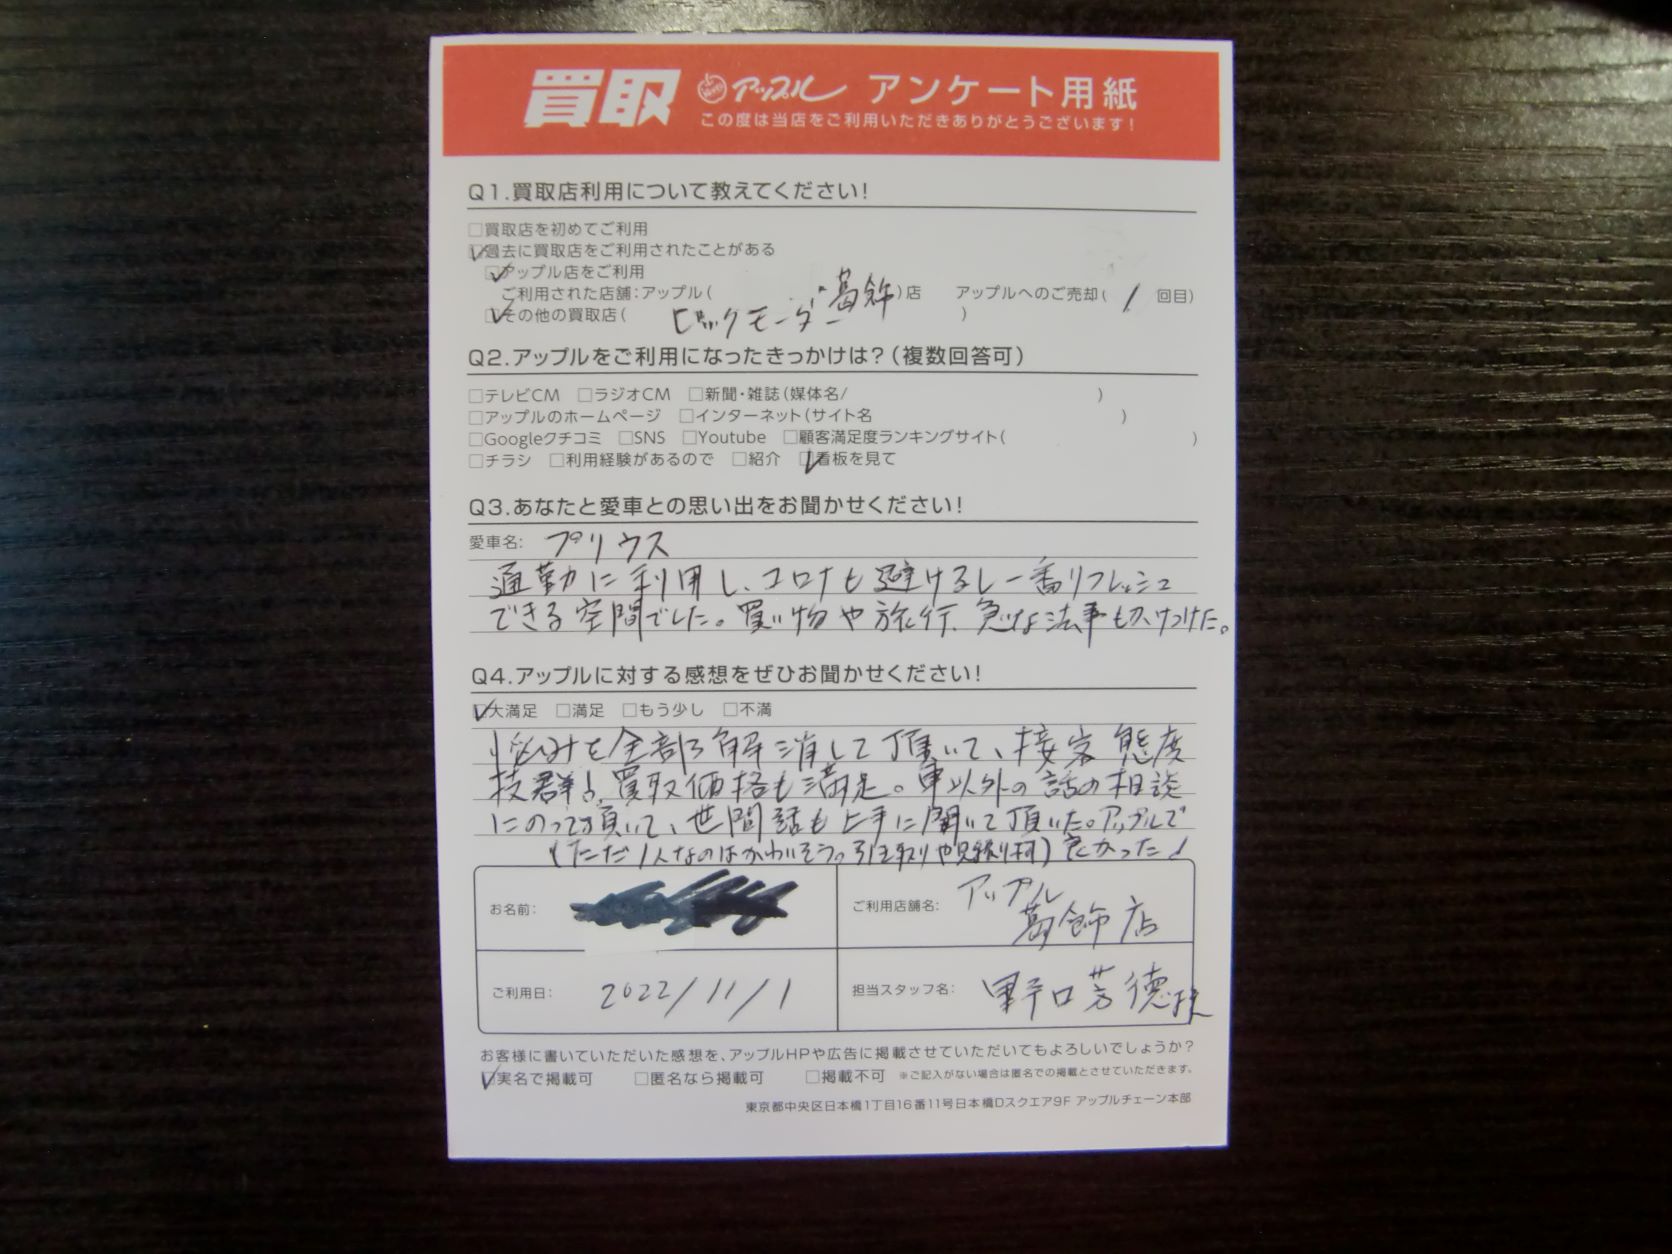 買取 アップル アンケート用紙
この度は当店をご利用いただきありがとうございます!
Q1.買取店利用について教えてください!
□買取店を初めてご利用
☑過去に買取店をご利用されたことがある
☑アップル店をご利用
ご利用された店舗:アップル( 葛飾 )店 アップルへのご売却( 1 回目)
☑その他の買取店( ビックモーター )
Q2.アップルをご利用になったきっかけは?(複数回答可)
□テレビCM □ラジオCM □新聞・雑誌(媒体名/ )
□アップルのホームページ □インターネット(サイト名 )
□Googleクチコミ □SNS □Youtube □顧客満足度ランキングサイト( )
□チラシ □利用経験があるので □紹介 ☑看板を見て
Q3.あなたと愛車との思い出をお聞かせください!
愛車名: プリウス
通勤に利用し、コロナも避けるし一番リフレッシュ
できる空間でした。買い物や旅行、急な法事もかけつけた。
Q4.アップルに対する感想をぜひお聞かせください!
☑大満足 □満足 □もう少し □不満
悩みを全部解消して頂いて、接客態度
抜群!買取価格も満足。車以外の話の相談
にのって頂いて、世間話も上手に聞いて頂いた。アップルで
(ただ1人なのはかわいそう。引き取りや見積り可)良かった!
お名前:
ご利用店舗名: アップル
葛飾店
ご利用日: 2022/11/1
担当スタッフ名: 野口芳徳様
お客様に書いていただいた感想を、アップルHPや広告に掲載させていただいてもよろしいでしょうか?
☑実名で掲載可 □匿名なら掲載可 □掲載不可 ※ご記入がない場合は匿名での掲載とさせていただきます。
東京都中央区日本橋1丁目16番11号日本橋Dスクエア9F アップルチェーン本部